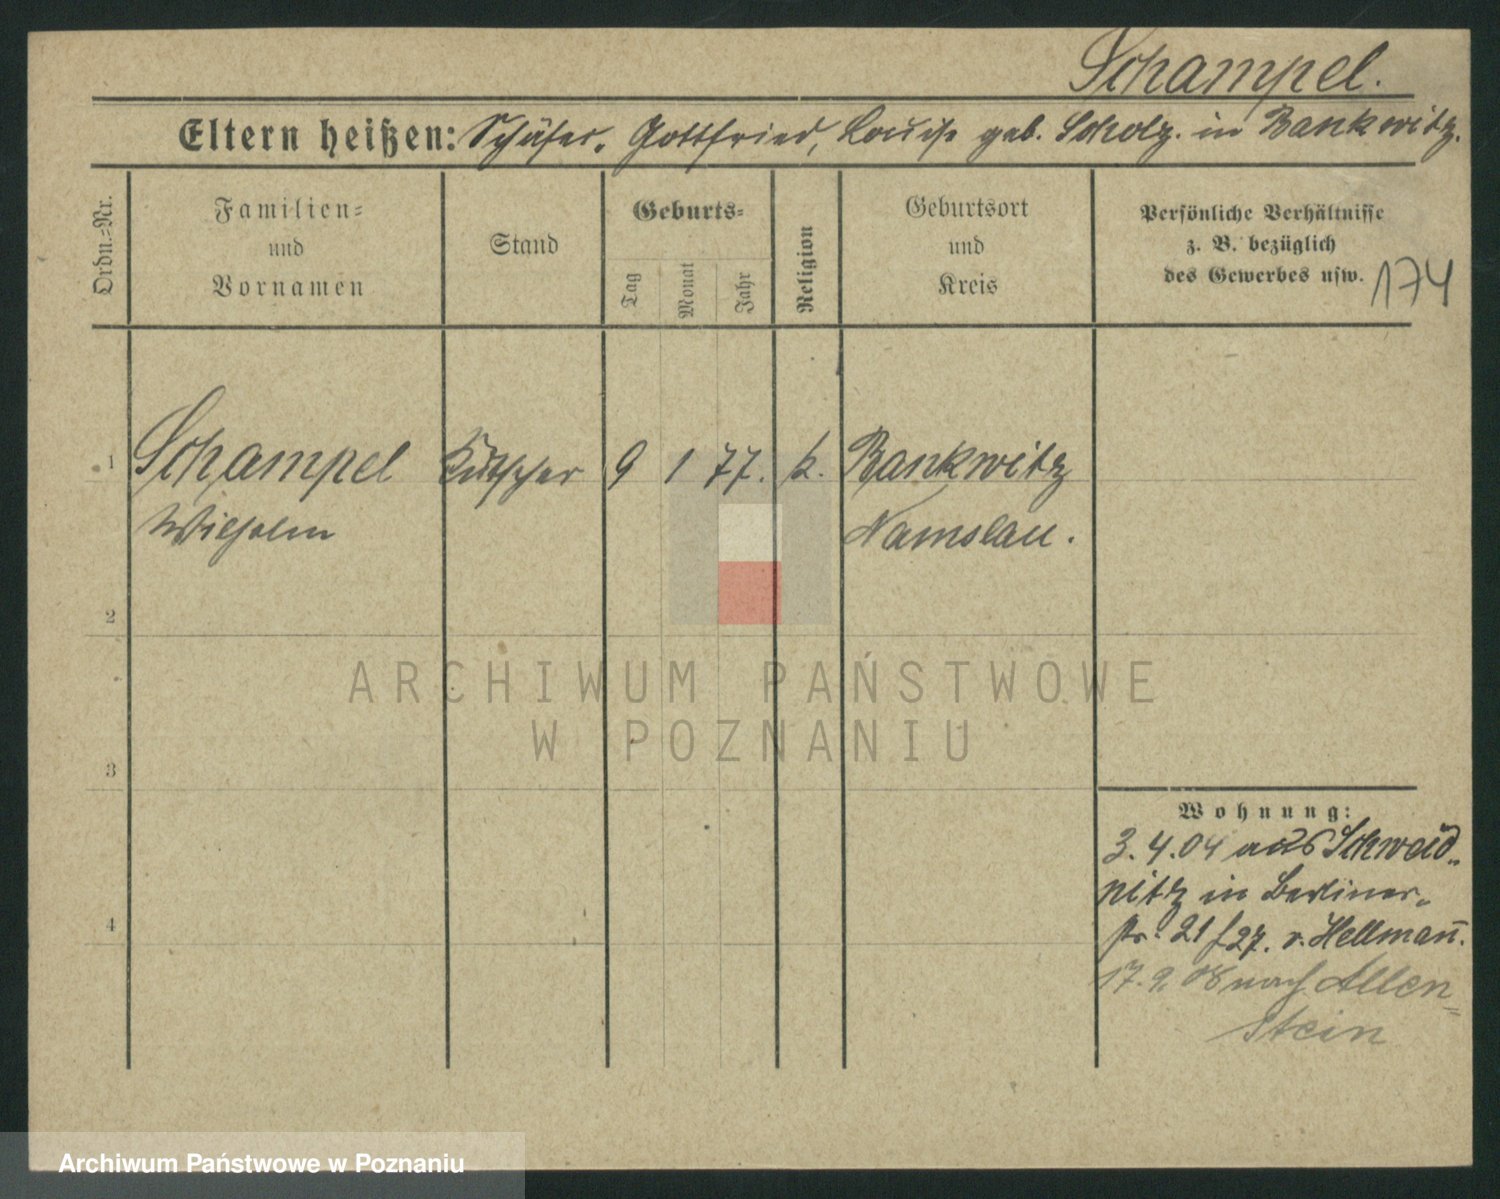 Schampel.
Eltern heißen: Schäfer. Gottfried, Louise geb. Scholz. in Bankwitz.
Ordn.=Nr.
Familien=
und
Vornamen
Stand
Geburts=
Tag
Monat
Jahr
Religion
Geburtsort
und
Kreis
Persönliche Verhältnisse
z. B. bezüglich
des Gewerbes usw.
174
1 Schampel Kutscher 9 1 77. k. Bankwitz
Wilhelm Namslau.
2
ARCHIWUM PAŃSTWOWE
W POZNANIU
3
Wohnung:
3.4.04 aus Schweid„
nitz in Berliner„
str. 21 27. v. Hellman̄.
17.9.08 nach Allen=
stein
4
Archiwum Państwowe w Poznaniu